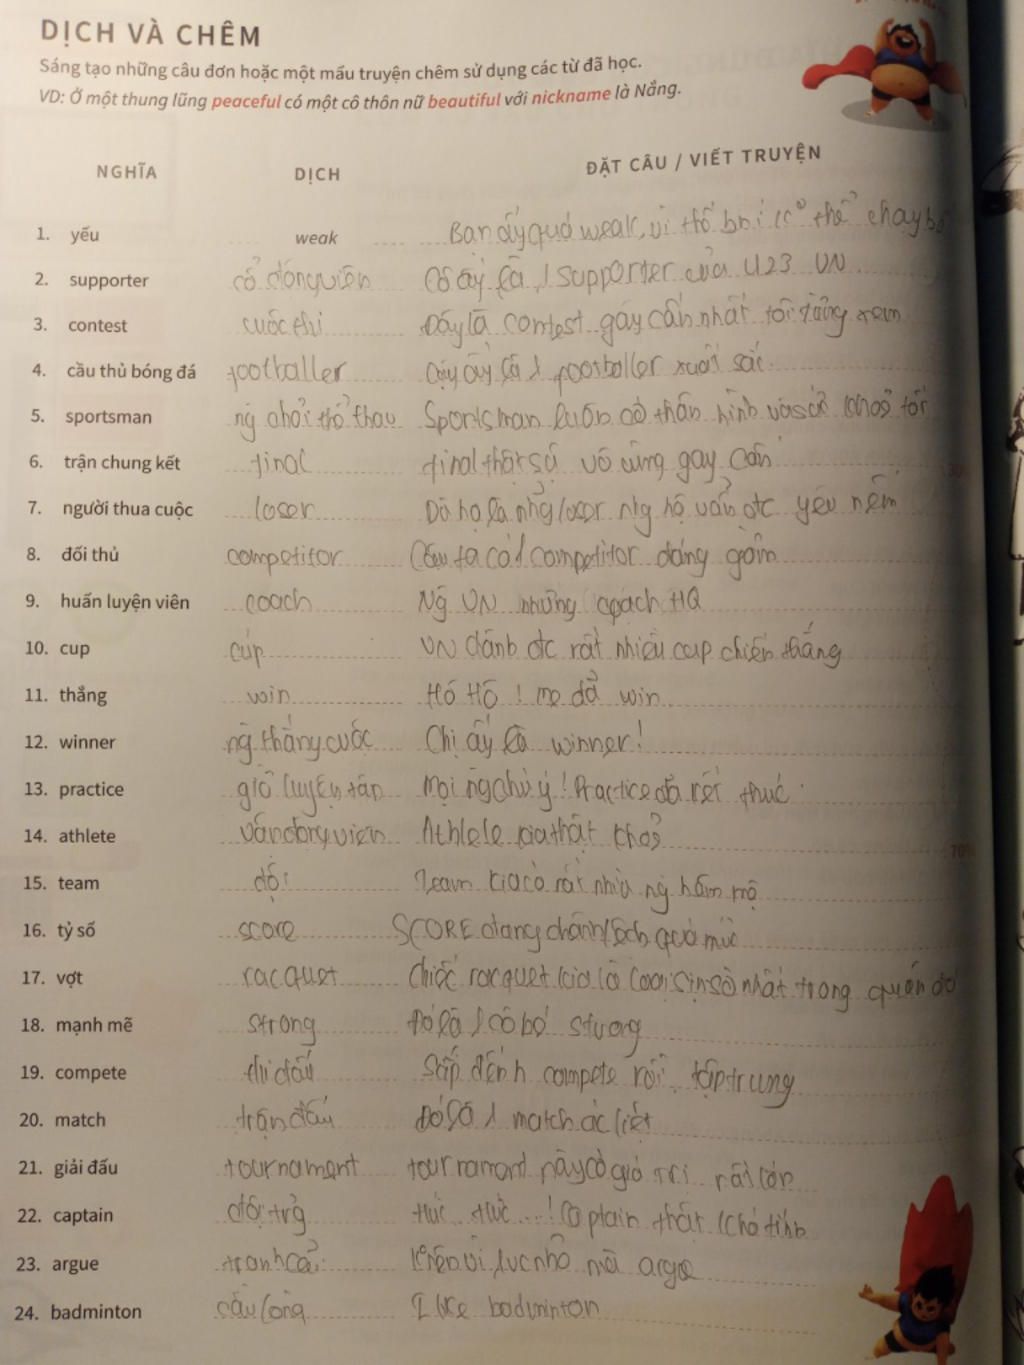 DỊCH VÀ CHÊM
Sáng tạo những câu đơn hoặc một mẩu truyện chêm sử dụng các từ đã học.
VD: Ở một thung lũng peaceful có một cô thôn nữ beautiful với nickname là Nắng.
NGHĨA DỊCH ĐẶT CÂU / VIẾT TRUYỆN
1. yếu weak Bạn ấy quá weak, vì thế bn i k° thể chạy bộ
2. supporter cổ động viên Cô ấy là 1 supporter của U23 VN
3. contest cuộc thi Đây là contest gay cấn nhất tôi từng xem
4. cầu thủ bóng đá footballer Cậu ấy là 1 footballer xuất sắc.
5. sportsman ng chơi thể thao Sportsman luôn có thân hình và sức khoẻ tốt
6. trận chung kết final final thật sự vô cùng gay cấn
7. người thua cuộc loser Dù họ là nhg loser nhg họ vẫn đc yêu mến
8. đối thủ competitor Cậu ta có 1 competitor đáng gờm
9. huấn luyện viên coach Ng VN những coach HQ
10. cup cúp VN dành đc rất nhiều cup chiến thắng
11. thắng win Hô Hô ! mẹ đã win
12. winner ng thắng cuộc Chị ấy là winner!
13. practice giờ luyện tập Mọi ng chú ý ! Practice đã kết thúc
14. athlete vận động viên Athlele kia thật khoẻ
15. team đội Team kia có rất nhìu ng hâm mộ
16. tỷ số score SCORE đang chênh lệch quá mức
17. vợt racquet Chiếc racquet kia là loại sịn sò nhất trong quán đó
18. mạnh mẽ strong Đó là 1 cô bé strong
19. compete thi đấu Sắp đến h compete rồi, tập trung
20. match trận đấu Đó là 1 match ác liệt
21. giải đấu tournament tournament này có giá trị rất lớn
22. captain đội trg tức tức...! Captain thật khó tính
23. argue tranh cãi vì lúc nhỏ mà argue
24. badminton cầu lông I like badminton